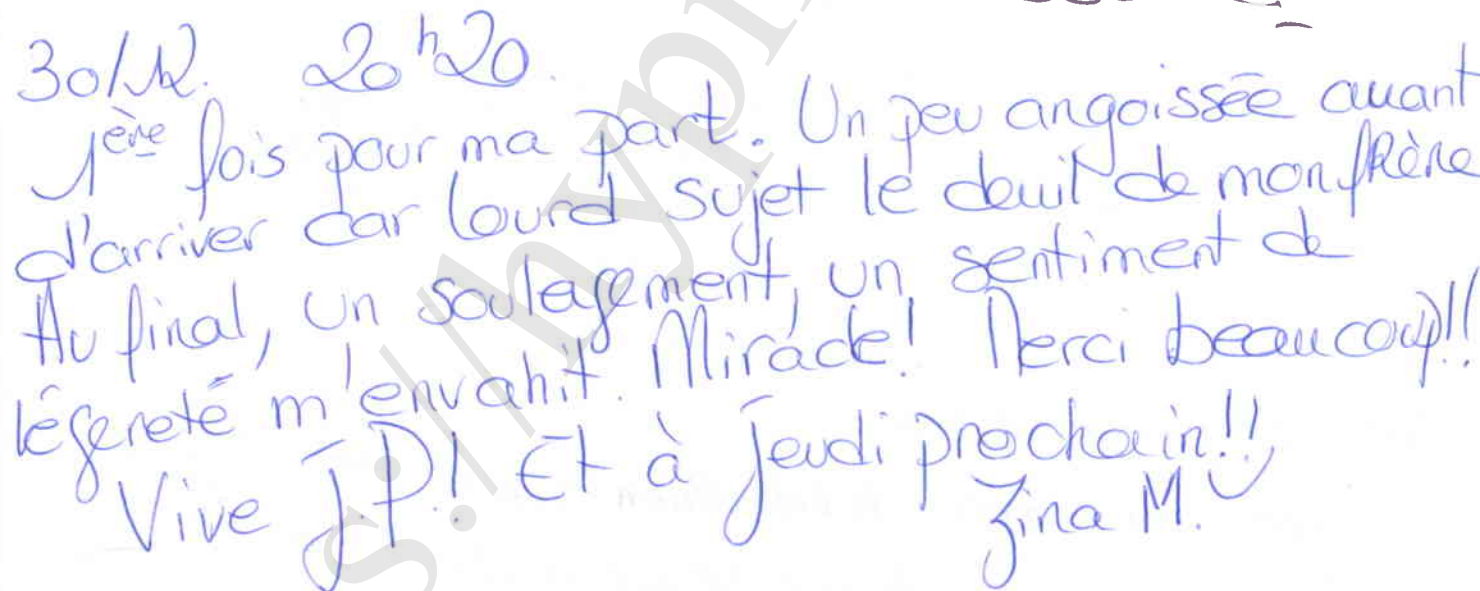 30/12. 20h20.
1ère fois pour ma part. Un peu angoissée avant
d'arriver car lourd sujet le deuil de mon frère
Au final, un soulagement, un sentiment de
légereté m'envahit. Miracle! Merci beaucoup!!
Vive J.P.! Et à jeudi prochain!!
Zina M.
s://hypn